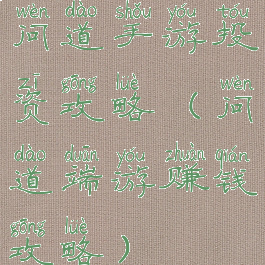 wèn dào shǒu yóu tóu
问道手游投
zī gōng lüè wèn
资攻略（问
dào duān yóu zhuàn qián
道端游赚钱
gōng lüè
攻略）